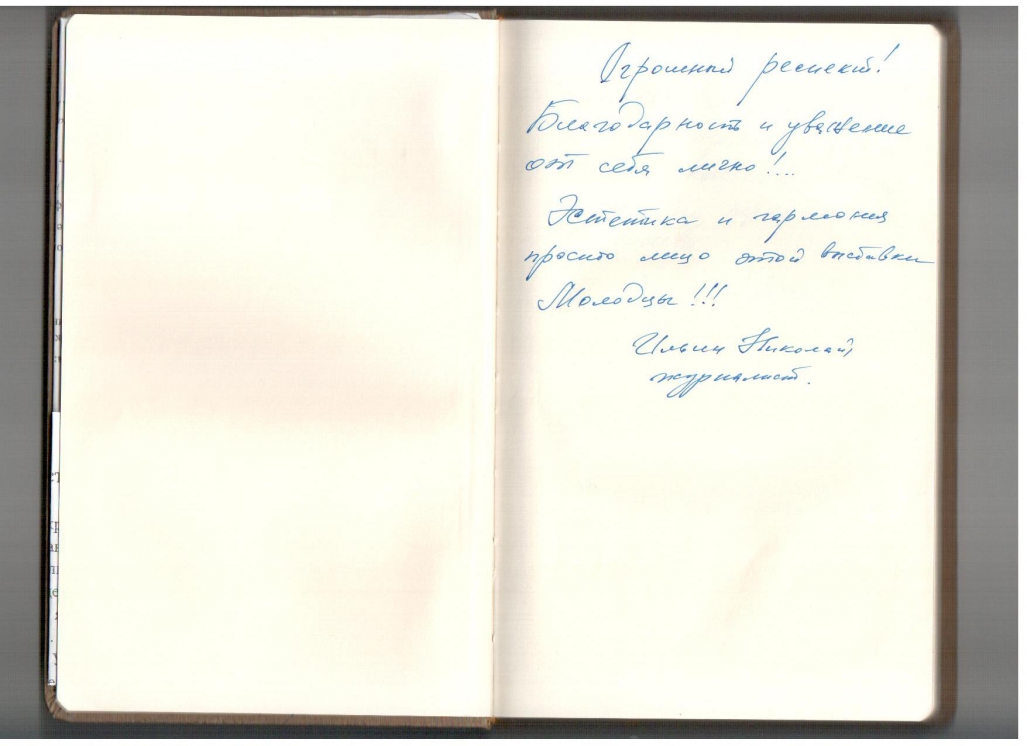 Огромный респект!
Благодарность и уважение
от себя лично!...
Эстетика и гармония
просто лицо этой выставки
Молодцы!!!
Ильин Николай,
журналист.